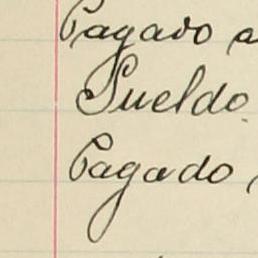 Pagado a
Sueldo
Pagado